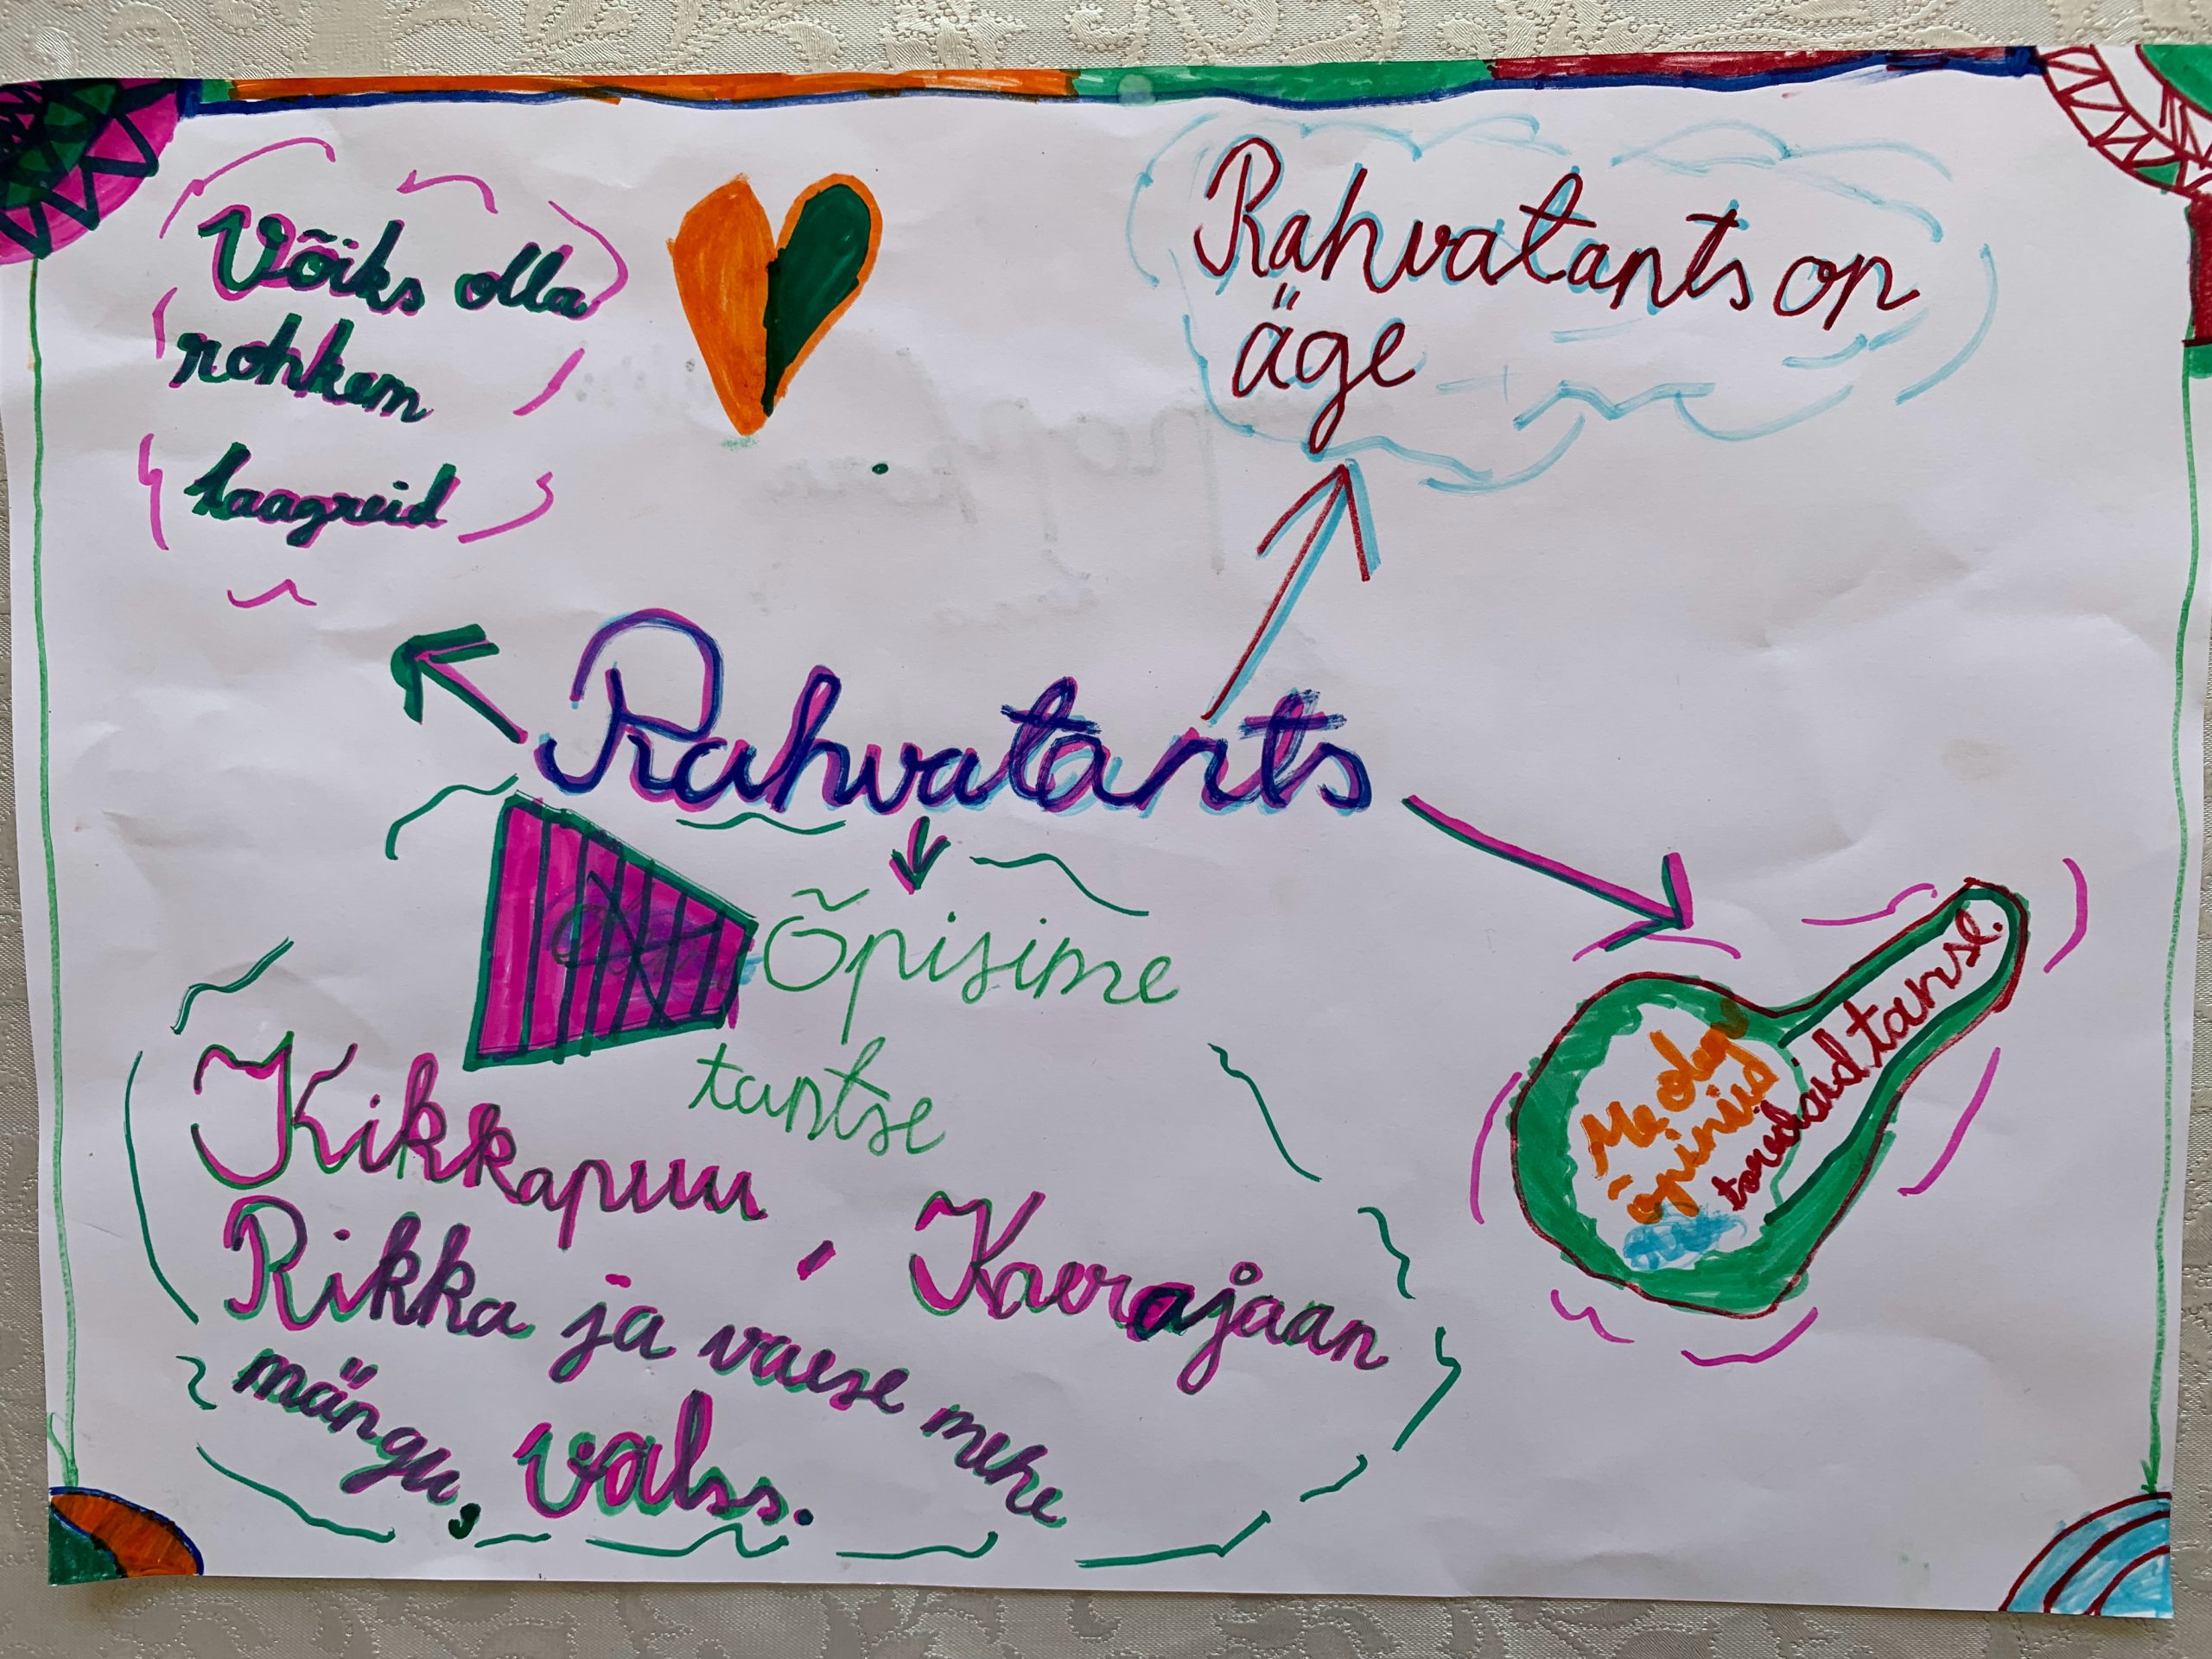 Võiks olla
rohkem
laagreid
Rahvatants on
äge
Rahvatants
Õpisime
tantse
Kikkapuu, Kaerajaan
Rikka ja vaese mehe
mängu, valss.
Me
toredaid tantse.